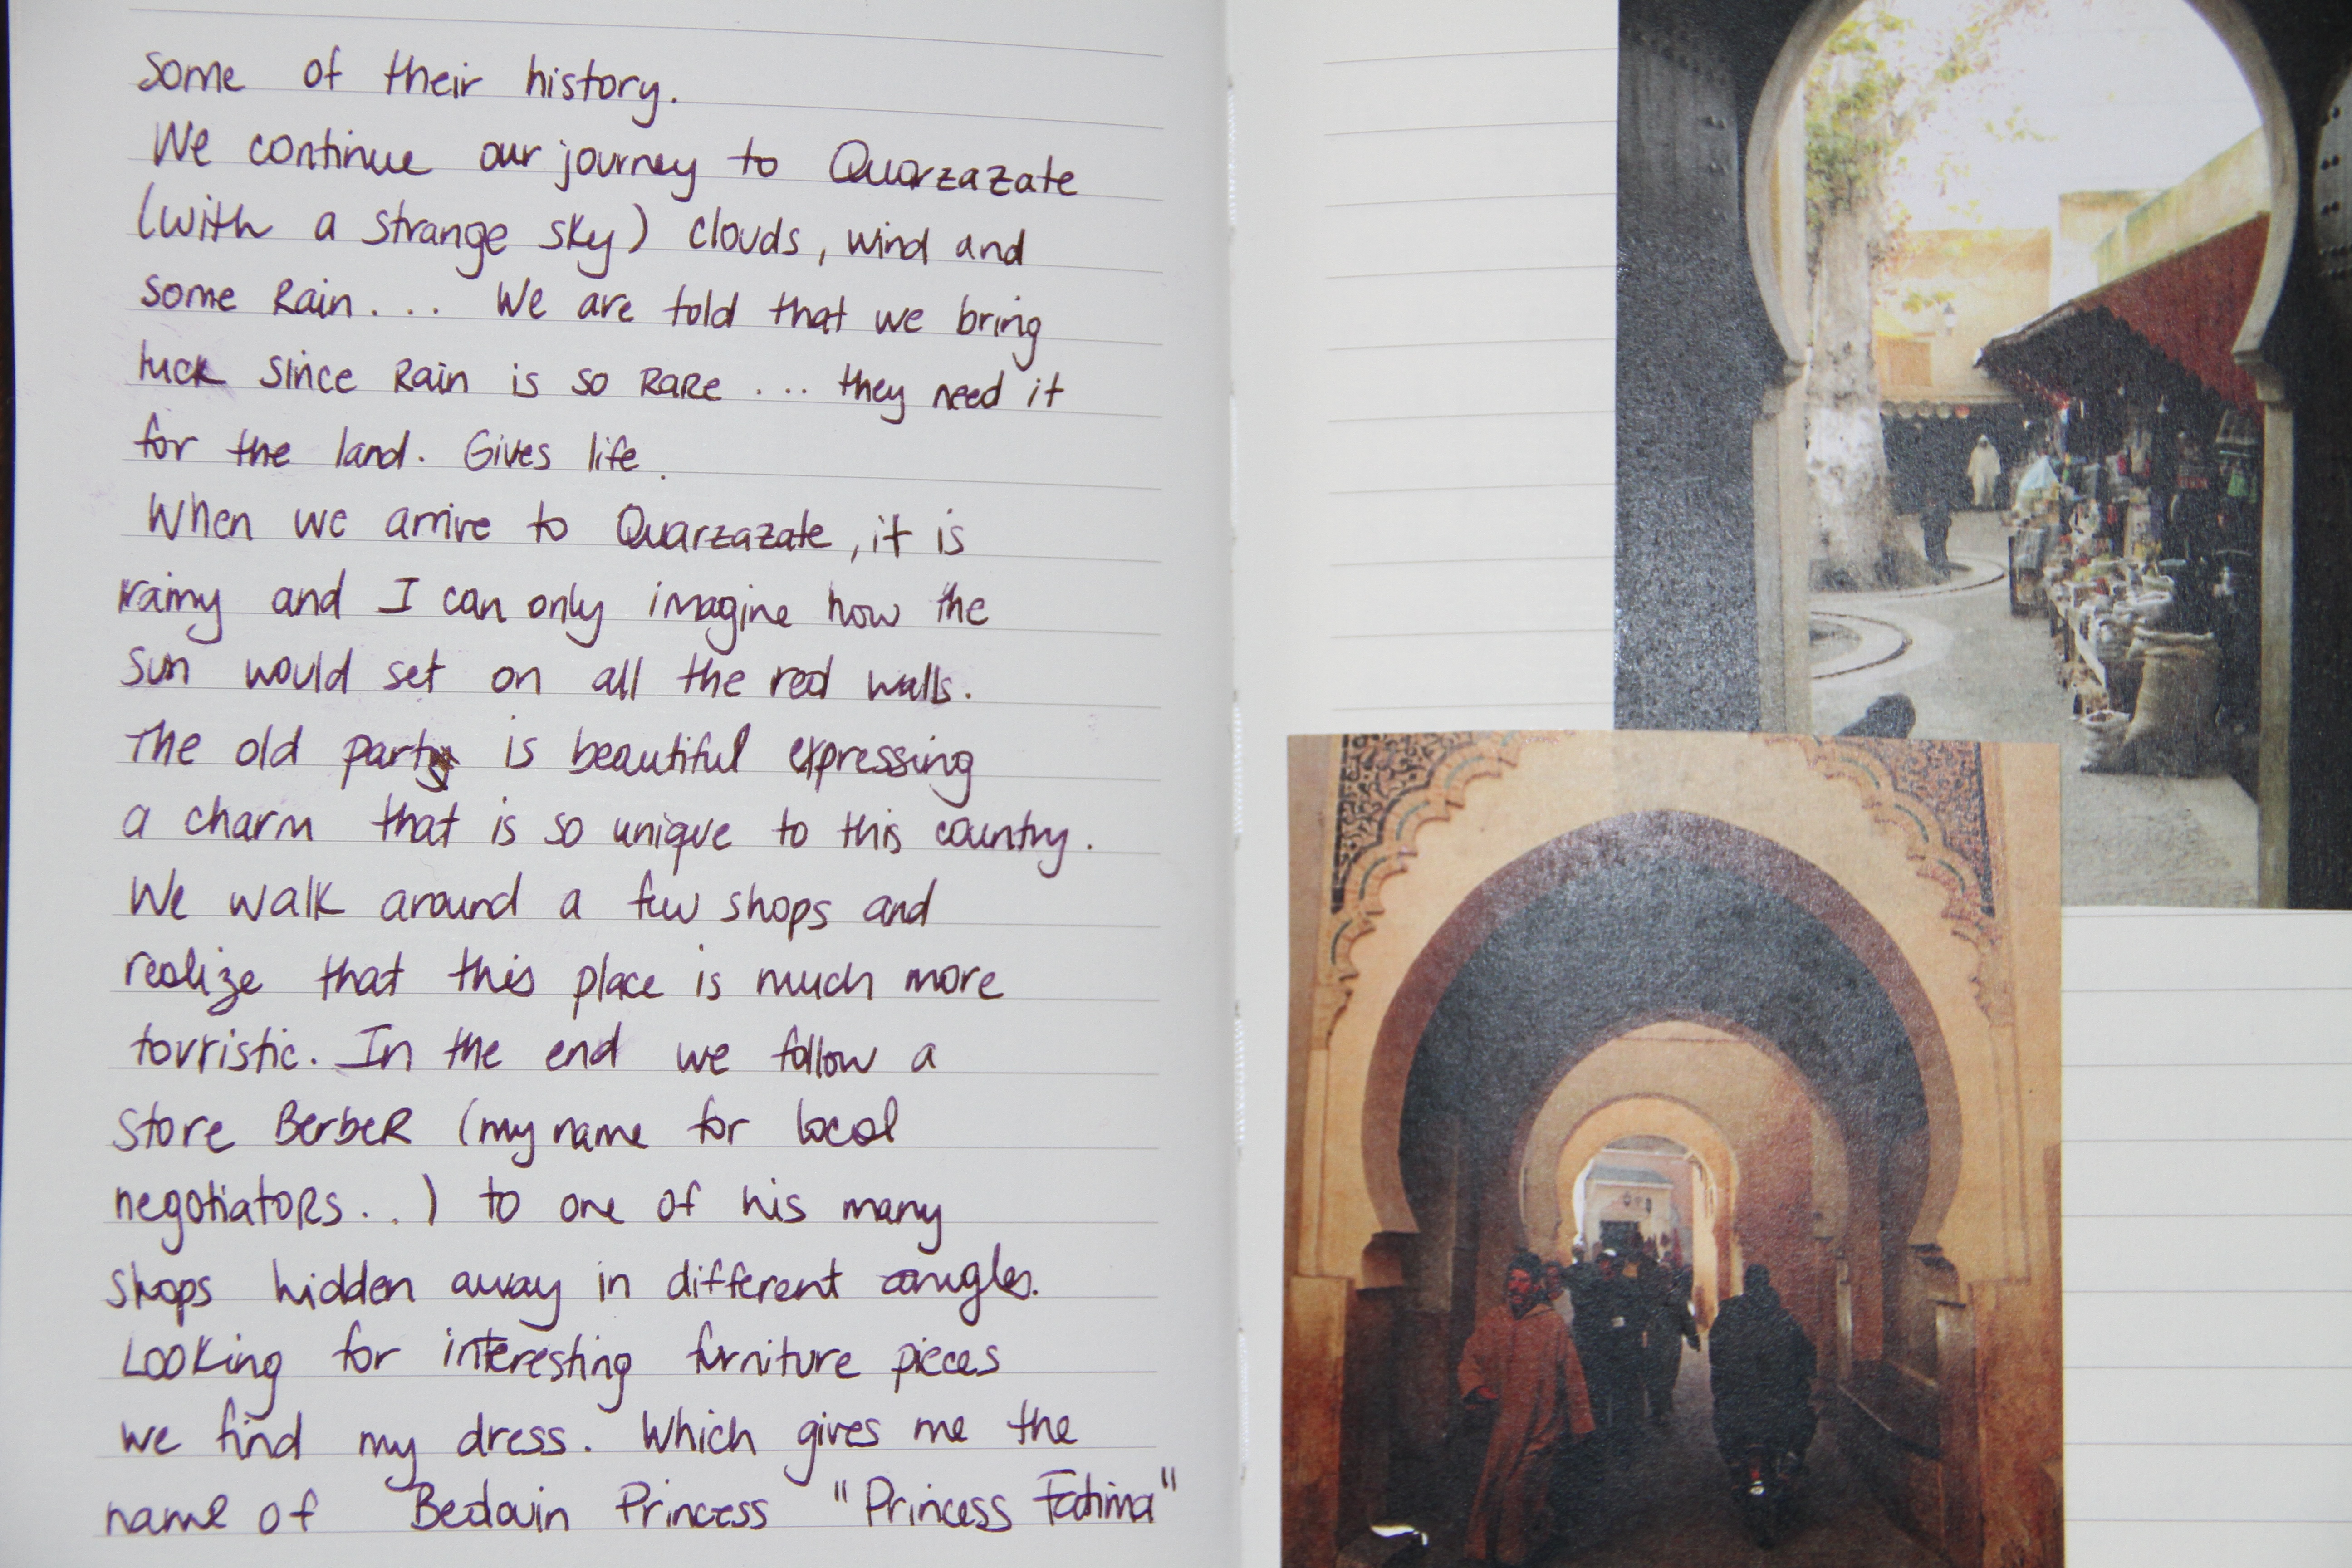 some of their history.
We continue our journey to Quarzazate
(with a strange sky) clouds, wind and
some Rain.... We are told that we bring
luck since Rain is so RaRe .... they need it
for the land. Gives life.
When we arrive to Quarzazate, it is
rainy and I can only imagine how the
sun would set on all the red walls.
The old part is beautiful expressing
a charm that is so unique to this country.
We walk around a few shops and
realize that this place is much more
tourristic. In the end we follow a
store BerbeR (my name for local
negotiatoRs...) to one of his many
shops hidden away in different angles.
Looking for interesting furniture pieces
we find my dress. Which gives me the
name of Bedouin Princess "Princess Fatima"